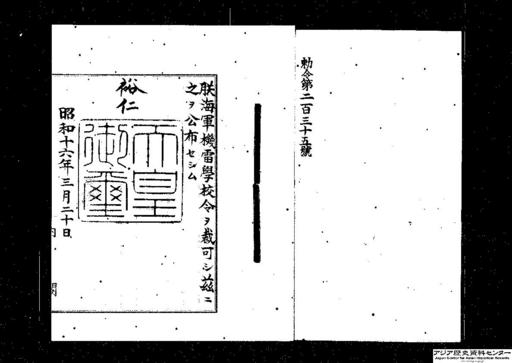 勅令第二百三十五號
朕海軍機雷學校令ヲ裁可シ茲ニ
之ヲ公布セシム
裕仁
天皇
御璽
昭和十六年三月二十日
内
閣
アジア歴史資料センター
Japan Center for Asian Historical Records